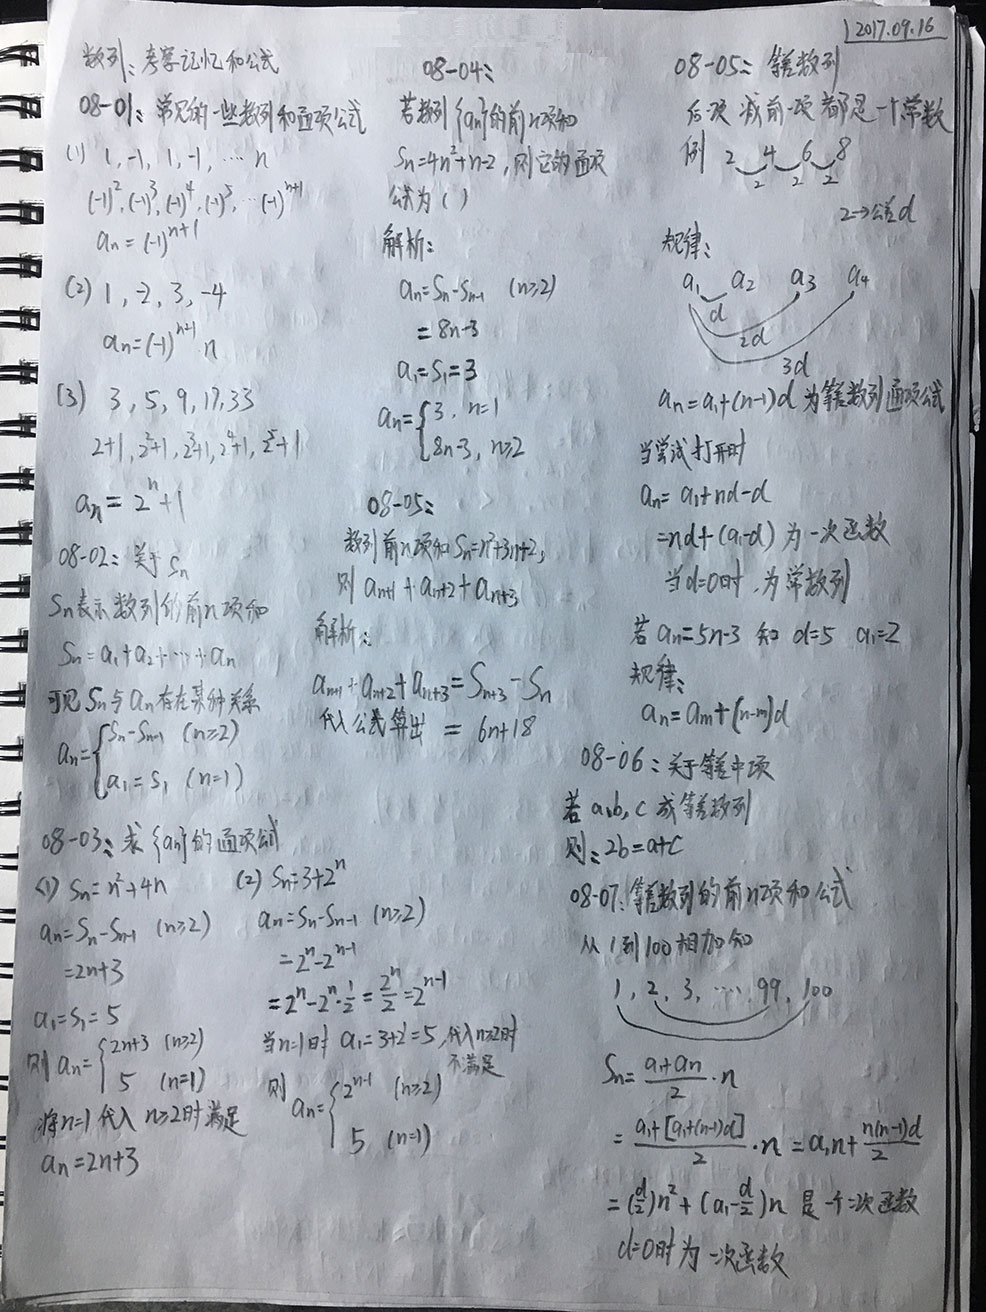 2017.09.16
数列:考察记忆和公式
08-01: 常见的一些数列和通项公式
(1) 1, -1, 1, -1, … n
(-1)², (-1)³, (-1)⁴, (-1)⁵, … (-1)ⁿ⁺¹
aₙ = (-1)ⁿ⁺¹
(2) 1, -2, 3, -4
aₙ = (-1)ⁿ⁺¹·n
(3) 3, 5, 9, 17, 33
2+1, 2²+1, 2³+1, 2⁴+1, 2⁵+1
aₙ = 2ⁿ+1
08-02: 关于Sₙ
Sₙ表示数列的前n项和
Sₙ = a₁+a₂+…+aₙ
可见Sₙ与aₙ存在某种关系
aₙ = { Sₙ-Sₙ₋₁ (n≥2)
a₁ = S₁ (n=1)
08-03: 求{aₙ}的通项公式
(1) Sₙ = n²+4n
aₙ = Sₙ-Sₙ₋₁ (n≥2)
= 2n+3
a₁ = S₁ = 5
则 aₙ = { 2n+3 (n≥2)
5 (n=1)
将n=1代入n≥2时满足
aₙ = 2n+3
(2) Sₙ = 3+2ⁿ
aₙ = Sₙ-Sₙ₋₁ (n≥2)
= 2ⁿ-2ⁿ⁻¹
= 2ⁿ-2ⁿ·1/2 = 2ⁿ/2 = 2ⁿ⁻¹
当n=1时 a₁=3+2¹=5,代入n≥2时
不满足
则 aₙ = { 2ⁿ⁻¹ (n≥2)
5 (n=1)
08-04:
若数列{aₙ}的前n项和
Sₙ=4n²+n-2, 则它的通项
公式为( )
解析:
aₙ = Sₙ-Sₙ₋₁ (n≥2)
= 8n-3
a₁ = S₁ = 3
aₙ = { 3, n=1
8n-3, n≥2
08-05:
数列前n项和Sₙ=n²+3n+2,
则 aₙ₊₁+aₙ₊₂+aₙ₊₃
解析:
aₙ₊₁+aₙ₊₂+aₙ₊₃ = Sₙ₊₃-Sₙ
代入公式算出 = 6n+18
08-05: 等差数列
后一项减前一项都是一个常数
例 2 4 6 8
2 2 2
2→公差d
规律:
a₁ a₂ a₃ a₄
d
2d
3d
aₙ=a₁+(n-1)d 为等差数列通项公式
当尝试打开时
aₙ = a₁+nd-d
=nd+(a₁-d) 为一次函数
当d=0时, 为常数列
若 aₙ=5n-3 知 d=5 a₁=2
规律:
aₙ=aₘ+(n-m)d
08-06: 关于等差中项
若 a,b,c 成等差数列
则: 2b=a+c
08-07: 等差数列的前n项和公式
从1到100相加知
1, 2, 3, …, 99, 100
Sₙ = (a₁+aₙ)/2·n
= (a₁+[a₁+(n-1)d])/2·n = a₁n+n(n-1)d/2
= (d/2)n²+(a₁-d/2)n 是一个二次函数
d=0时为一次函数